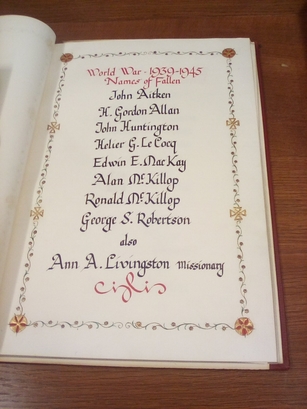 World War - 1939-1945
Names of Fallen
John Aitken
H. Gordon Allan
John Huntington
Helier G. Le Cocq
Edwin E. MacKay
Alan McKillop
Ronald McKillop
George S. Robertson
also
Ann A. Livingston Missionary